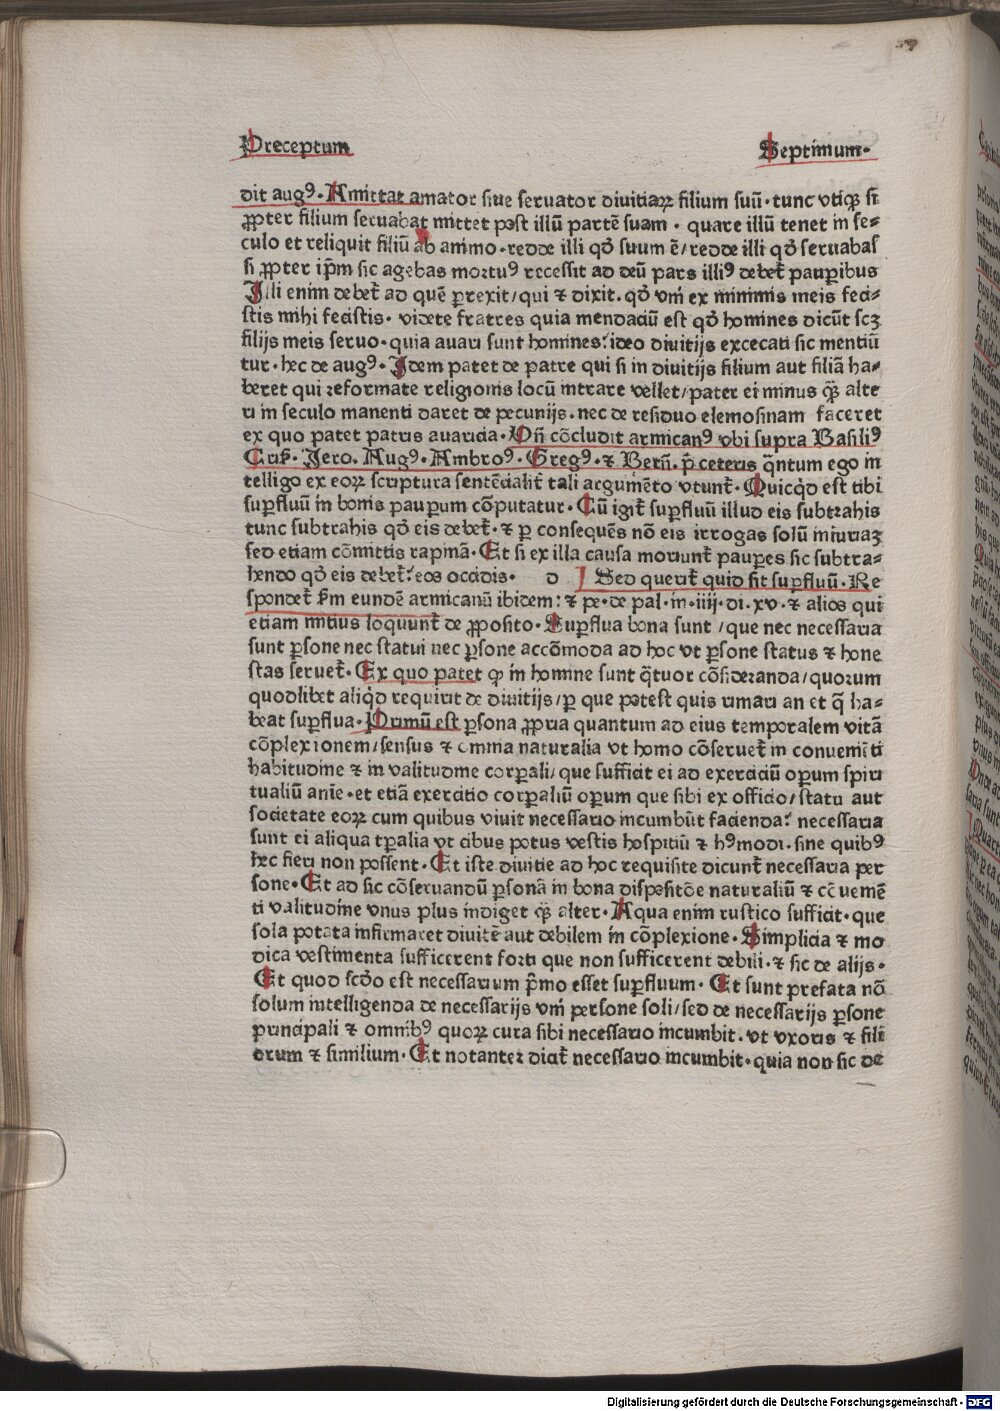 Preceptum Septimum·
dit augꝰ· Amittat amator siue seruator diuitiaꝝ filium suū· tunc vtiqꝫ si
ꝓpter filium seruabat mittet post illū partē suam· quare illū tenet in se⸗
culo et reliquit filiū ab animo· redde illi qđ suum ē/ redde illi qđ seruabas
si ꝓpter ip̄m sic agebas mortuꝰ recessit ad deū pars illiꝰ debet̄ pauꝑibus
Illi enim debet̄ ad quē ꝑrexit/ qui ⁊ dixit· qđ vni ex minimis meis feci⸗
stis mihi fecistis· videte fratres quia mendaciū est qđ homines dicūt scꝫ
filijs meis seruo· quia auari sunt homines: ideo diuitijs excecati sic mentiū
tur· hec de augꝰ· Idem patet de patre qui si in diuitijs filium aut filiā ha⸗
beret qui reformate religionis locū intrare vellet/ pater ei minus qꝫ̄ alte
ri in seculo manenti daret de pecunijs· nec de residuo elemosinam faceret
ex quo patet patris auaricia· Vn̄ cōcludit armicanꝰ vbi supra Basiliꝰ
Cris̄· Jero· Augꝰ· Ambroꝰ· Gregꝰ· ⁊ Bern̄· p̄ ceteris q̄ntum ego in
telligo ex eoꝝ scriptura sentēcialit̄ tali argumēto vtunt̄· Quicqd̄ est tibi
suꝑfluū in bonis pauꝑum cōputatur· Cū igit̄ suꝑfluū illud eis subtrahis
tunc subtrahis qđ eis debet̄· ⁊ ꝑ consequēs nō eis irrogas solū iniuriaꝫ
sed etiam cōmittis rapinā· Et si ex illa causa moriunt̄ pauꝑes sic subtra⸗
hendo qđ eis debet̄: eos occidis· d Sed querit̄ quid sit suꝑfluū· Re
spondet̄ s̄m eundē armicanū ibidem: ⁊ pe· de pal· in· iiij· di· xv· ⁊ alios qui
etiam mitius loquunt̄ de ꝓposito· Suꝑflua bona sunt/ que nec necessaria
sunt ꝑsone nec statui nec ꝑsone accōmoda ad hoc vt ꝑsone status ⁊ hone
stas seruet̄· Ex quo patet ꝙ in homine sunt q̄tuor cōsideranda/ quorum
quodlibet aliqd̄ requirit de diuitijs/ ꝑ que potest quis rimari an et q̄ ha⸗
beat suꝑflua· Primū est ꝑsona ꝓpria quantum ad eius temporalem vitā
cōplexionem/ sensus ⁊ omnia naturalia vt homo cōseruet̄ in conueniēti
habitudine ⁊ in valitudine corꝑali/ que sufficit ei ad exerciciū oꝑum spiri
tualiū anīe· et etiā exercitio corꝑaliū oꝑum que sibi ex officio/ statu aut
societate eoꝝ cum quibus viuit necessario incumbūt facienda: necessaria
sunt ei aliqua tꝑalia vt cibus potus vestis hospitiū ⁊ hꝰmodi· sine quibꝰ
hec fieri non possent· Et iste diuitie ad hoc requisite dicunt̄ necessaria per
sone· Et ad sic cōseruandū ꝑsonā in bona dispositōe naturaliū ⁊ cōuemē
ti valitudine vnus plus indiget qꝫ̄ alter· Aqua enim rustico sufficit· que
sola potata infirmaret diuitē aut debilem in cōplexione· Simplicia ⁊ mo
dica vestimenta sufficerent forti que non sufficerent debili· ⁊ sic de alijs·
Et quod scd̄o est necessarium p̄mo esset suꝑfluum· Et sunt prefata nō
solum intelligenda de necessarijs vni persone soli/ sed de necessarijs ꝑsone
principali ⁊ omnibꝰ quoꝝ cura sibi necessario incumbit· vt vxoris ⁊ fili
orum ⁊ similium· Et notanter dicit̄ necessario incumbit· quia non sic de
Digitalisierung gefördert durch die Deutsche Forschungsgemeinschaft - DFG